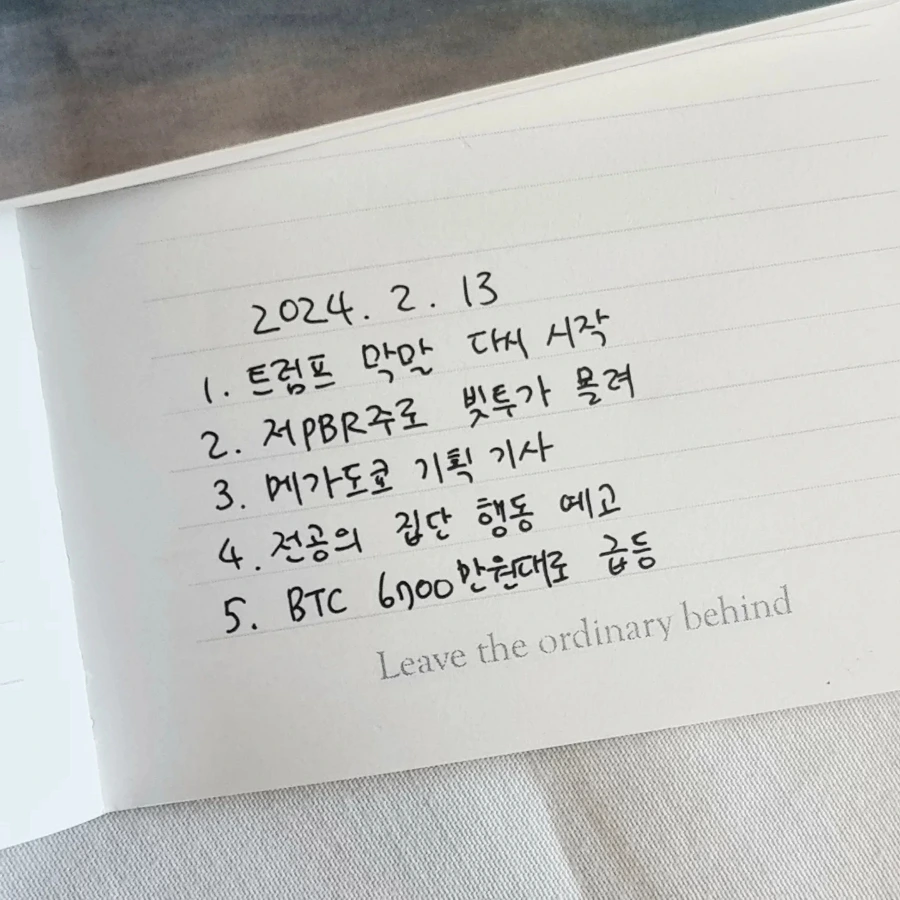 2024. 2. 13
1. 트럼프 막말 다시 시작
2. 저PBR주로 빚투가 몰려
3. 메가도쿄 기획 기사
4. 전공의 집단 행동 예고
5. BTC 6700만원대로 급등
Leave the ordinary behind